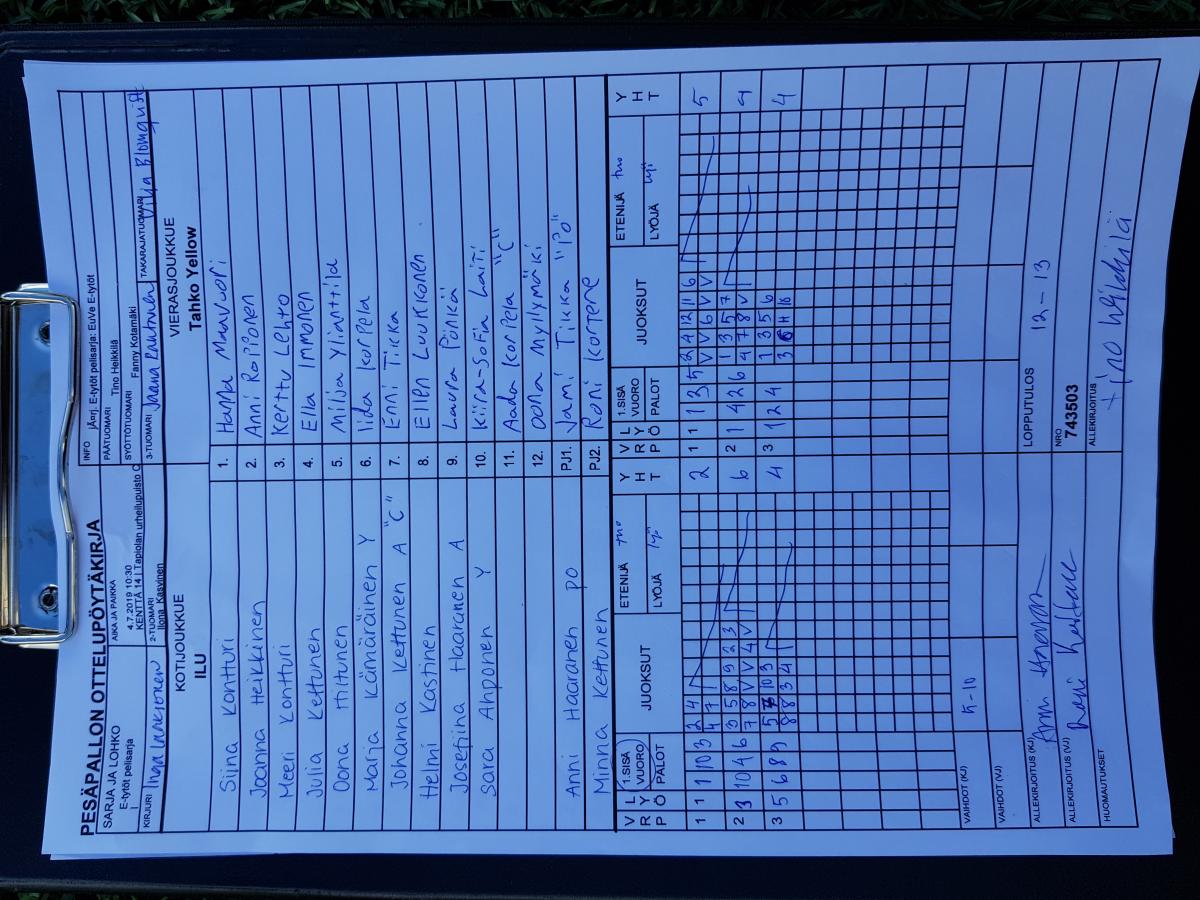 PESÄPALLON OTTELUPÖYTÄKIRJA
SARJA JA LOHKO
E-tytöt pelisarja
I
AIKA JA PAIKKA
4.7.2019 10:30
KENTTÄ 14 | Tapiolan urheilupuisto C
INFO
E-tytöt pelisarja: EuVe E-tytöt
PÄÄTUOMARI
Tino Heikkilä
SYÖTTÖTUOMARI
Fanny Kotamäki
KIRJURI Inga
2-TUOMARI
Ilona Kasvinen
3-TUOMARI Jaana Rautunen
TAKARAJATUOMARI Vilja Blomqvist
KOTIJOUKKUE
ILU
VIERASJOUKKUE
Tahko Yellow
Siina Kontturi 1. Hanna Mavuori
Joanna Heikkinen 2. Anni Roiponen
Meeri Kontturi 3. Kerttu Lehto
Julia Kettunen 4. Ella Immonen
Oona Hiltunen 5. Milja Ylianttila
Marja Kämäräinen Y 6. Iida Korpela
Johanna Kettunen A "C" 7. Enni Tikka
Helmi Kastinen 8. Ellen Luukkonen
Josefiina Haaranen A 9. Laura Pönkiä
Sara Ahponen Y 10. Kiira-Sofia Laiti
11. Aada Korpela "C"
12. Oona Myllymäki
Anni Haaranen PO PJ1. Jami Tikka "PO"
Minna Kettunen PJ2. Roni Kortene
V R P L Y Ö 1.SISÄ VUORO PALOT JUOKSUT ETENIJÄ LYÖJÄ Y H T
V R P L Y Ö 1.SISÄ VUORO PALOT JUOKSUT ETENIJÄ LYÖJÄ Y H T
1 1 1 10 3 2 4 2
4 7
1 1 1 3 5 2 4 12 11 6 5
V V 6 V V
2 3 10 4 6 3 5 8 9 2 3 6
7 8 V V 4 V
2 1 4 2 6 1 3 5 7 4
4 7 8 V
3 5 6 8 9 10 3 4
8 8 3 4
3 1 2 4 1 3 5 6 4
VAIHDOT (KJ) 5-10
VAIHDOT (VJ)
LOPPUTULOS 12-13
ALLEKIRJOITUS (KJ) Anni Haaranen
ALLEKIRJOITUS (VJ)
NRO
743503
HUOMAUTUKSET
ALLEKIRJOITUS
Tino Heikkilä